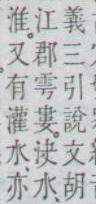 義三引說文胡
江郡雩婁。決水、
淮。又有灌水、亦